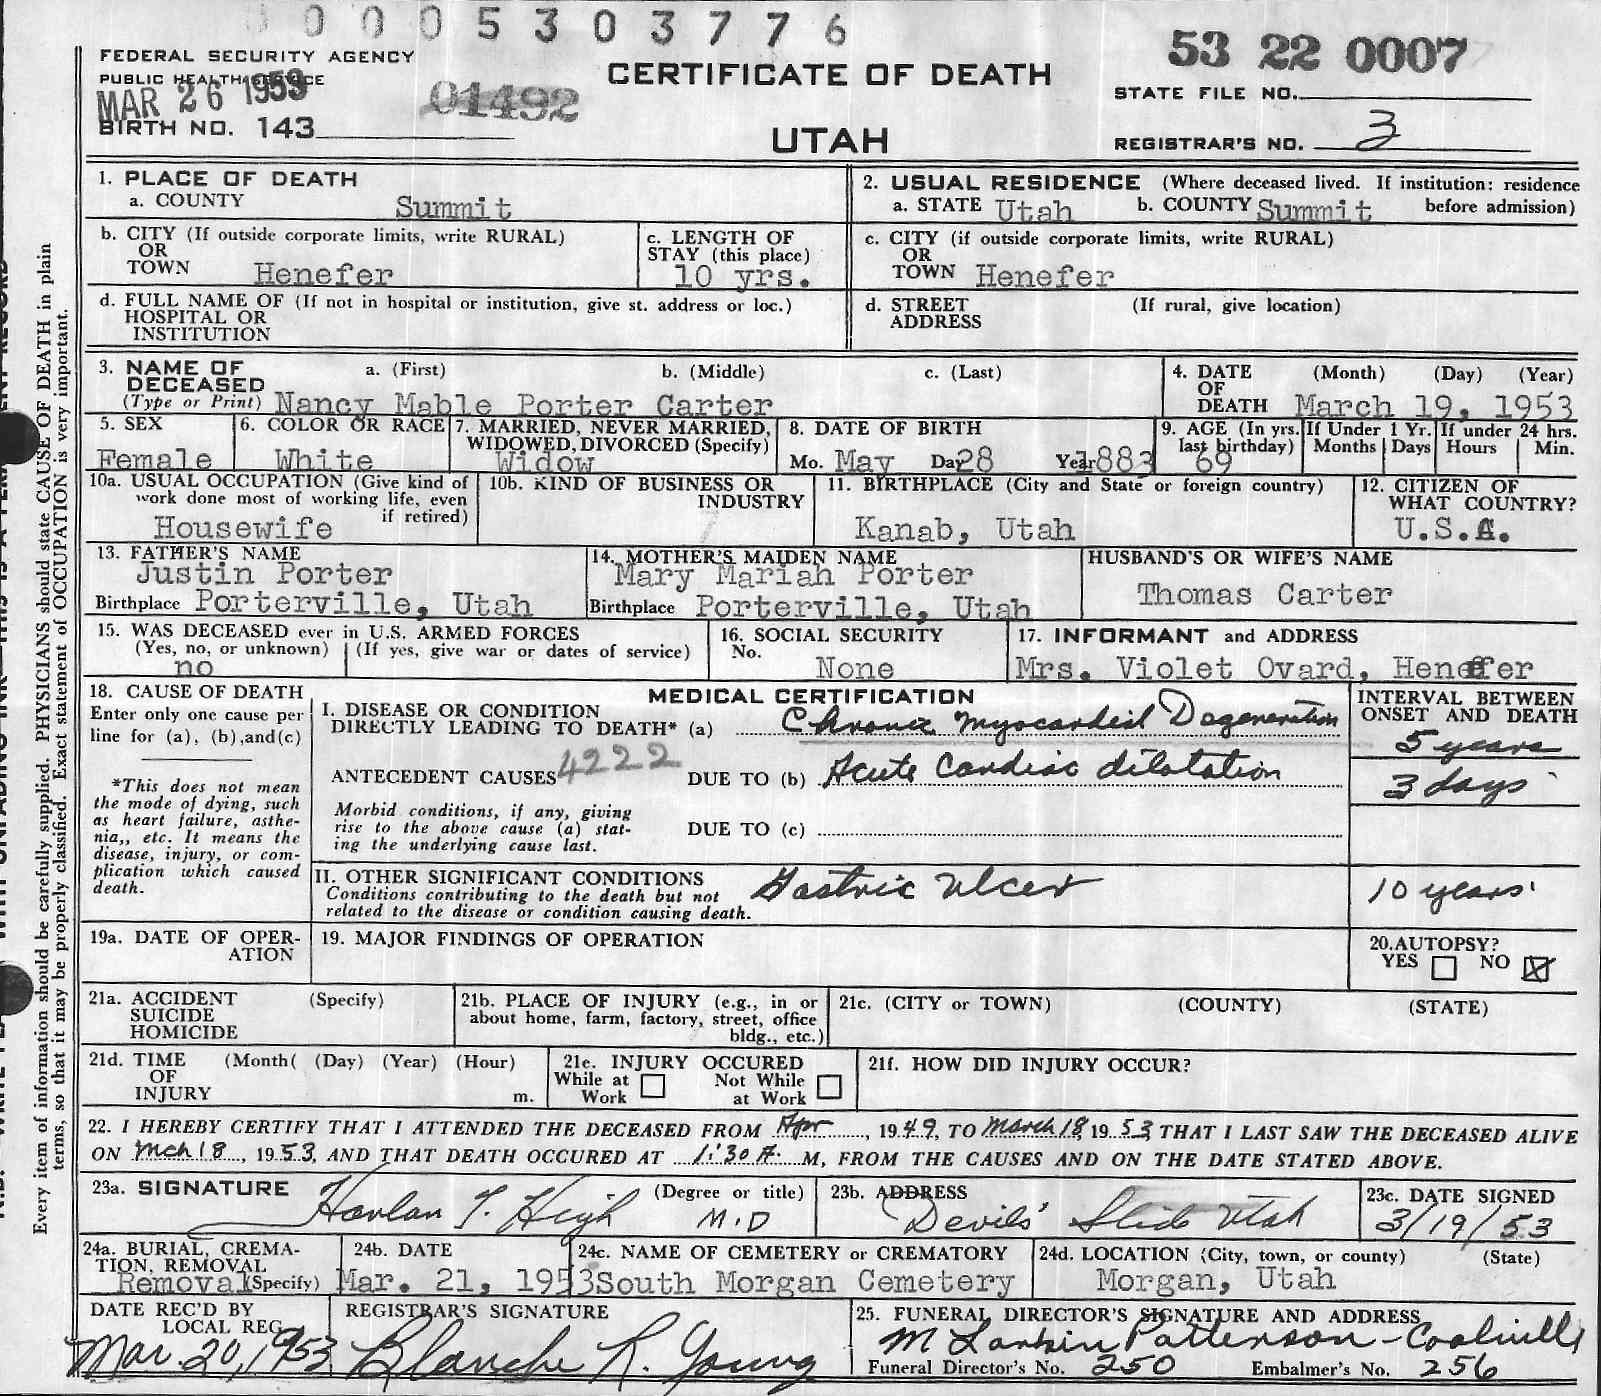 0 0 0 0 5 3 0 3 7 7 6
FEDERAL SECURITY AGENCY
PUBLIC HEALTH SERVICE
MAR 26 1953
01492
BIRTH NO. 143
CERTIFICATE OF DEATH
UTAH
53 22 0007
STATE FILE NO.
REGISTRAR'S NO. 3
1. PLACE OF DEATH
a. COUNTY Summit
2. USUAL RESIDENCE (Where deceased lived. If institution: residence
a. STATE Utah b. COUNTY Summit before admission)
b. CITY (If outside corporate limits, write RURAL)
OR
TOWN Henefer
c. LENGTH OF
STAY (this place)
10 yrs.
c. CITY (if outside corporate limits, write RURAL)
OR
TOWN Henefer
d. FULL NAME OF (If not in hospital or institution, give st. address or loc.)
HOSPITAL OR
INSTITUTION
d. STREET (If rural, give location)
ADDRESS
3. NAME OF a. (First) b. (Middle) c. (Last)
DECEASED
(Type or Print) Nancy Mable Porter Carter
4. DATE (Month) (Day) (Year)
OF
DEATH March 19, 1953
5. SEX
Female
6. COLOR OR RACE
White
7. MARRIED, NEVER MARRIED,
WIDOWED, DIVORCED (Specify)
Widow
8. DATE OF BIRTH
Mo. May Day 28 Year 1883
9. AGE (In yrs.
last birthday)
69
If Under 1 Yr.
Months Days
If under 24 hrs.
Hours Min.
10a. USUAL OCCUPATION (Give kind of
work done most of working life, even
if retired)
Housewife
10b. KIND OF BUSINESS OR
INDUSTRY
11. BIRTHPLACE (City and State or foreign country)
Kanab, Utah
12. CITIZEN OF
WHAT COUNTRY?
U.S.A.
13. FATHER'S NAME
Justin Porter
Birthplace Porterville, Utah
14. MOTHER'S MAIDEN NAME
Mary Mariah Porter
Birthplace Porterville, Utah
HUSBAND'S OR WIFE'S NAME
Thomas Carter
15. WAS DECEASED ever in U.S. ARMED FORCES
(Yes, no, or unknown) (If yes, give war or dates of service)
no
16. SOCIAL SECURITY
No.
None
17. INFORMANT and ADDRESS
Mrs. Violet Ovard, Henefer
18. CAUSE OF DEATH
Enter only one cause per
line for (a), (b),and(c)
*This does not mean
the mode of dying, such
as heart failure, asthe-
nia,, etc. It means the
disease, injury, or com-
plication which caused
death.
MEDICAL CERTIFICATION
I. DISEASE OR CONDITION
DIRECTLY LEADING TO DEATH* (a) Chronic Myocardial Degeneration
ANTECEDENT CAUSES 4222 DUE TO (b) Acute Cardiac dilatation
Morbid conditions, if any, giving
rise to the above cause (a) stat-
ing the underlying cause last.
DUE TO (c)
INTERVAL BETWEEN
ONSET AND DEATH
5 years
3 days
II. OTHER SIGNIFICANT CONDITIONS
Conditions contributing to the death but not
related to the disease or condition causing death.
Gastric Ulcer
10 years
19a. DATE OF OPER-
ATION
19. MAJOR FINDINGS OF OPERATION
20.AUTOPSY?
YES NO
21a. ACCIDENT (Specify)
SUICIDE
HOMICIDE
21b. PLACE OF INJURY (e.g., in or
about home, farm, factory, street, office
bldg., etc.)
21c. (CITY or TOWN) (COUNTY) (STATE)
21d. TIME (Month( (Day) (Year) (Hour)
OF
INJURY m.
21e. INJURY OCCURED
While at Not While
Work at Work
21f. HOW DID INJURY OCCUR?
22. I HEREBY CERTIFY THAT I ATTENDED THE DECEASED FROM Apr, 1949, TO March 18, 1953, THAT I LAST SAW THE DECEASED ALIVE
ON Mch 18, 1953, AND THAT DEATH OCCURED AT 1:30 A. M, FROM THE CAUSES AND ON THE DATE STATED ABOVE.
23a. SIGNATURE (Degree or title)
Harlan T. High M.D
23b. ADDRESS
Devils' Slide Utah
23c. DATE SIGNED
3/19/53
24a. BURIAL, CREMA-
TION, REMOVAL
Removal (Specify)
24b. DATE
Mar. 21, 1953
24c. NAME OF CEMETERY or CREMATORY
South Morgan Cemetery
24d. LOCATION (City, town, or county) (State)
Morgan, Utah
DATE REC'D BY
LOCAL REG.
Mar. 20, 1953
REGISTRAR'S SIGNATURE
Blanche R. Young
25. FUNERAL DIRECTOR'S SIGNATURE AND ADDRESS
M Larkin Patterson - Coalville
Funeral Director's No. 250 Embalmer's No. 256
Every item of information should be carefully supplied. PHYSICIANS should state CAUSE OF DEATH in plain
terms, so that it may be properly classified. Exact statement of OCCUPATION is very important.